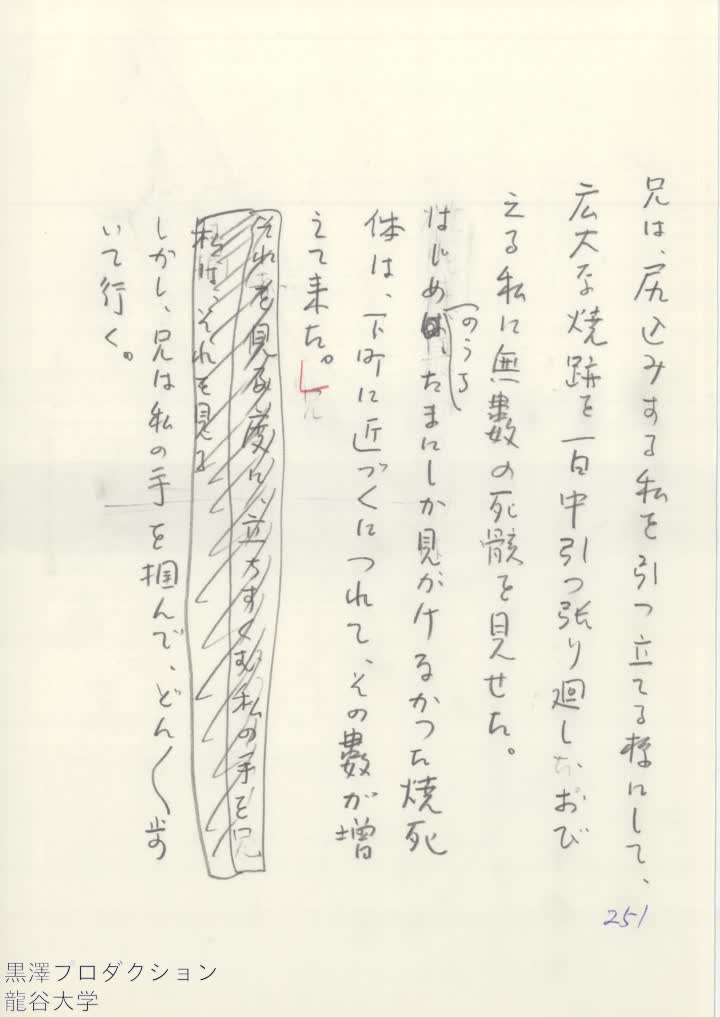 兄は、尻込みする私を引つ立てる様にして、
広大な焼跡を一日中引つ張り廻し、おび
える私に無數の死骸を見せた。
はじめのうち、たまにしか見かけなかつた焼死
体は、下町に近づくにつれて、その數が増
えて来た。
それを見る度に、立ちすくむ私の手を兄
私は、それを見る
しかし、兄は私の手を摑んで、どん〳〵歩
いて行く。
251
黒澤プロダクション
龍谷大学